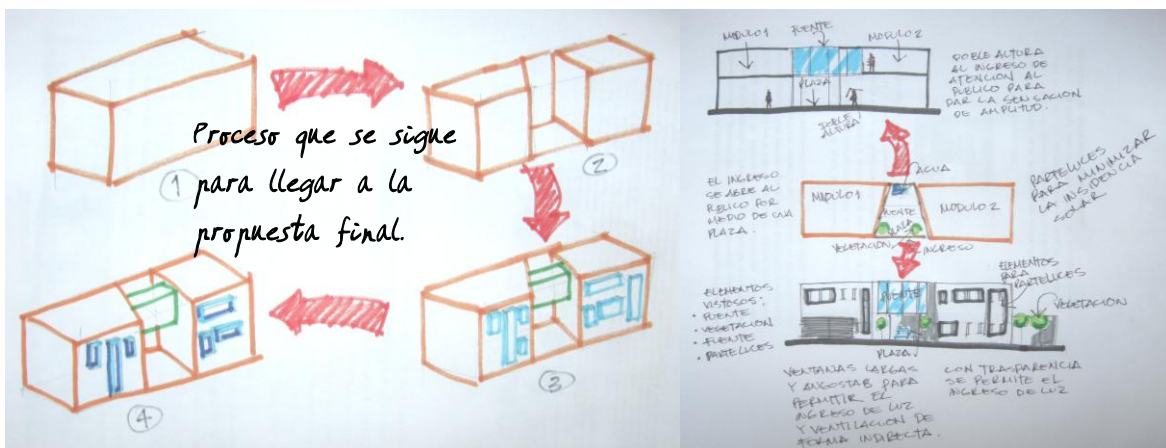 Proceso que se sigue
para llegar a la
propuesta final.
1
2
3
4
MODULO 1
PUENTE
MODULO 2
PLAZA
DOBLE
ALTURA
DOBLE ALTURA
AL INGRESO DE
ATENCION AL
PUBLICO PARA
DAR LA SENSACION
DE AMPLITUD.
EL INGRESO
SE ABRE AL
PUBLICO POR
MEDIO DE UNA
PLAZA.
AGUA
MODULO 1
PUENTE
PLAZA
MODULO 2
VEGETACION
INGRESO
PARTELUCES
PARA MINIMIZAR
LA INSIDENCIA
SOLAR
ELEMENTOS
VISTOSOS:
• PUENTE
• VEGETACION
• FUENTE
• PARTELUCES
PUENTE
PLAZA
ELEMENTOS
PARA
PARTELUCES
VEGETACIÓN
VENTANAS LARGAS
Y ANGOSTAS PARA
PERMITIR EL
INGRESO DE LUZ
Y VENTILACION DE
FORMA INDIRECTA.
CON TRASPARENCIA
SE PERMITE EL
INGRESO DE LUZ